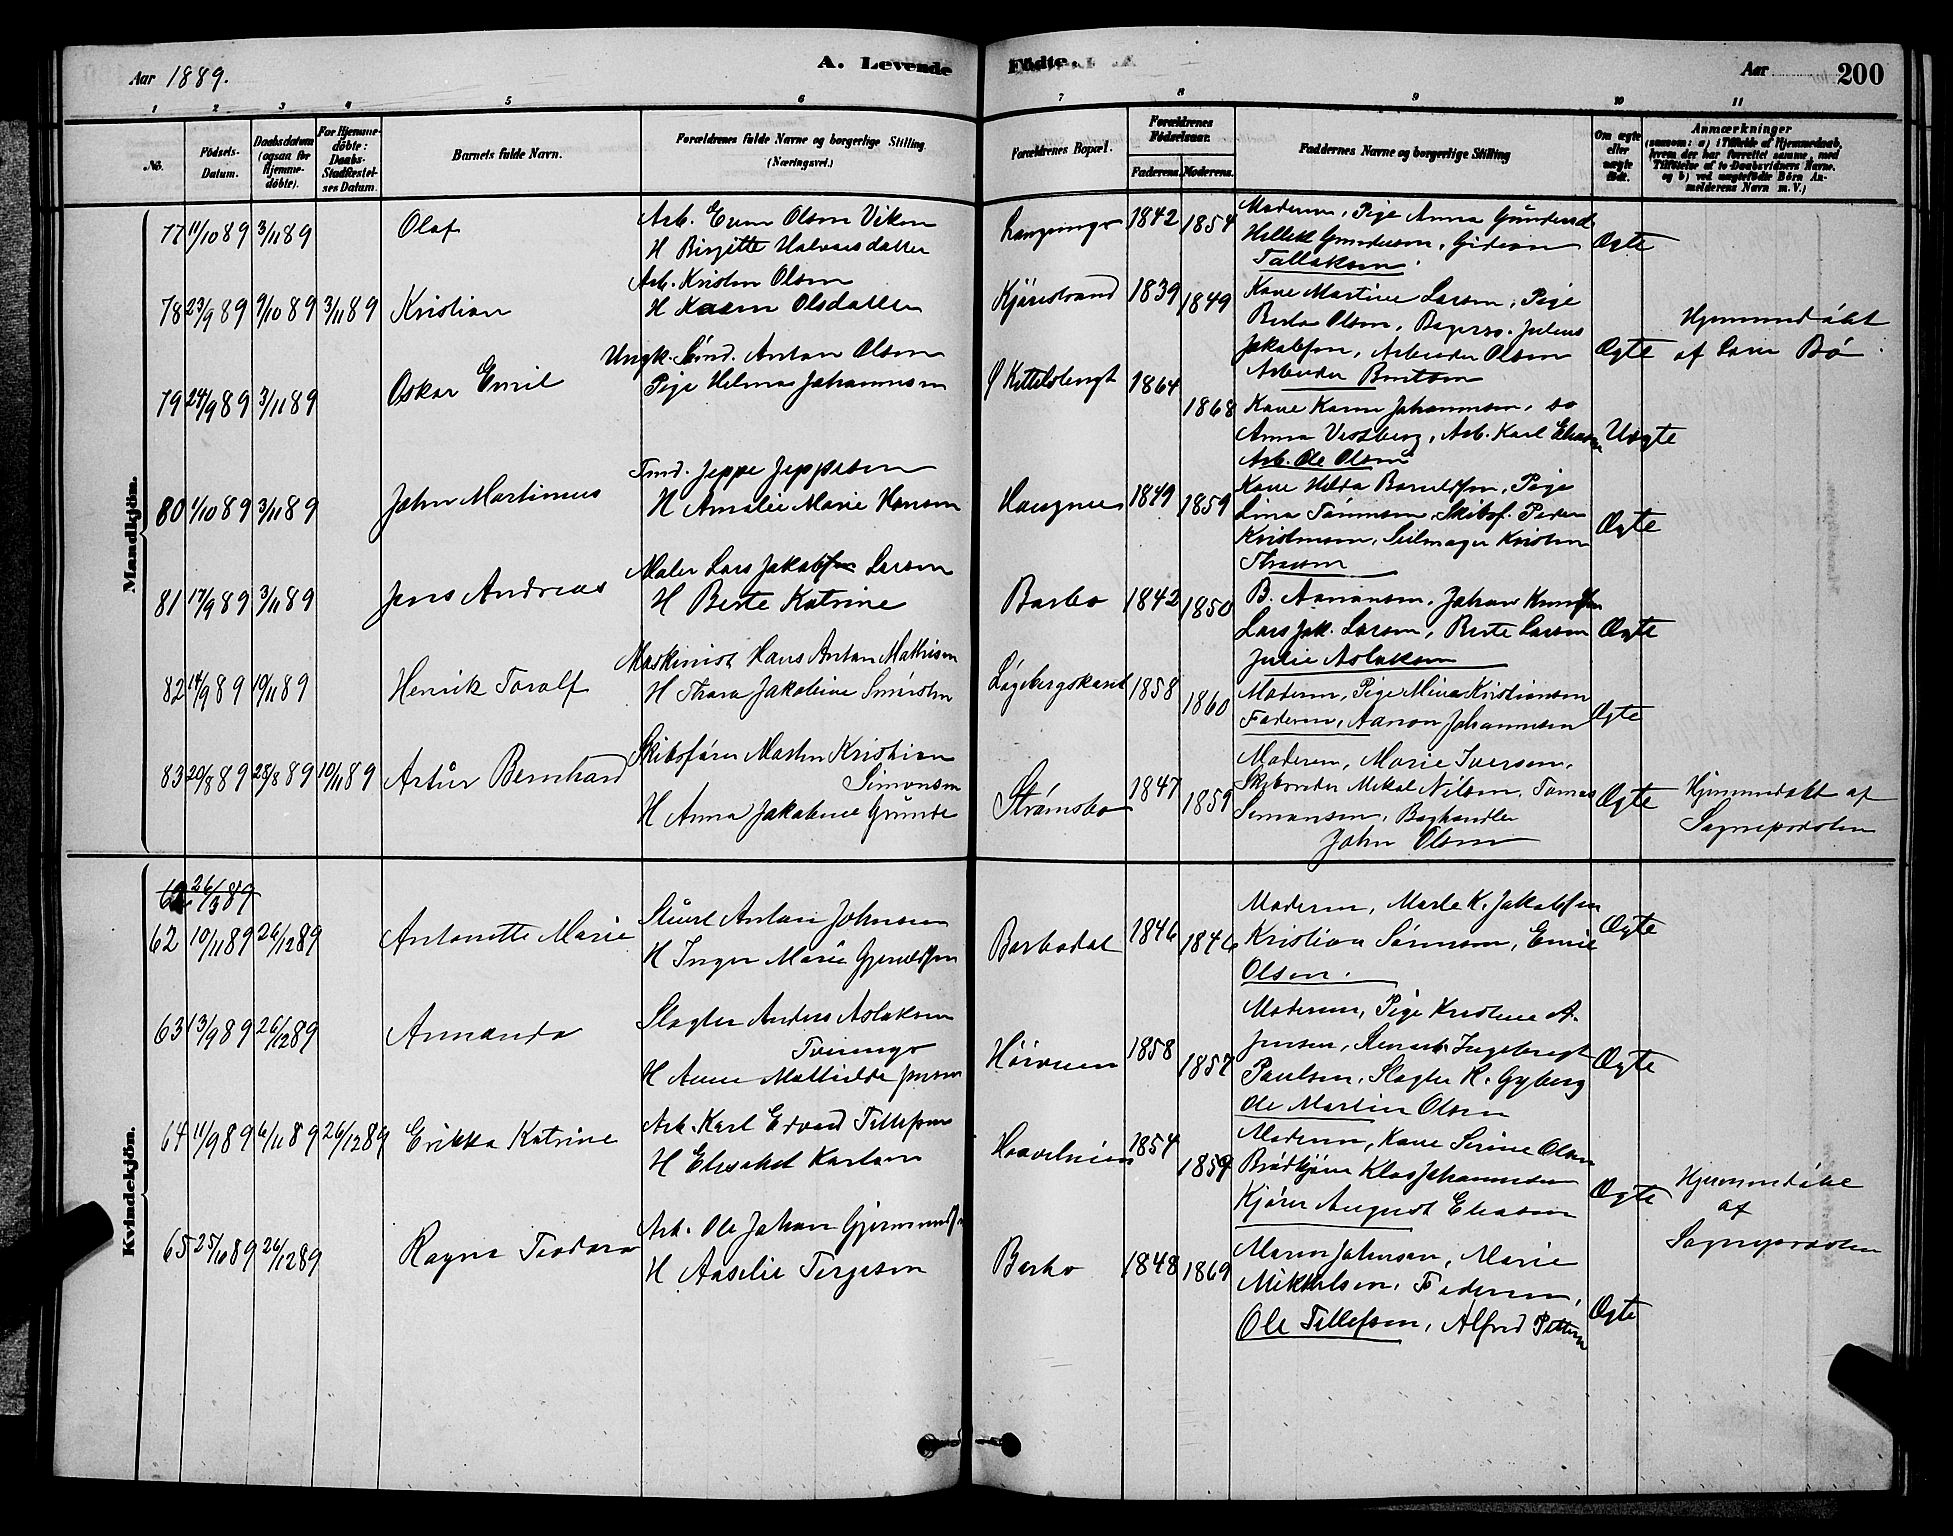 Aar 1889.
A. Levende
Födte.
Aar
200
1 2 3 4 5 6 7 8 9 10 11
No.
Födsels-Datum.
Daabsdatum (ogsaa for Hjemme-döbte).
For Hjemme-döbte: Daabs-Stadfæstel-ses Datum.
Barnets fulde Navn.
Forældrenes fulde Navne og borgerlige Stilling. (Næringsvei.)
Forældrenes Bopæl.
Forældrenes Födselsaar.
Faderens. Moderens.
Faddernes Navne og borgerlige Stilling
Om ægte eller uægte födt.
Anmærkninger
(saasom: a) i Tilfælde af Hjemmedaab, hvem der har forrettet samme, med Tilföielse af to Daabsvidners Navne, og b) ved uægtefödte Börn An-melderens Navn m. V.)
Mandkjön.
77 11/10 89 3/11 89 Olaf
Arb. Even Olsen Viken
H Birgitte Halvorsdatter
1842 1854
Moderen, Pige Anna
Gunderson, Gideon
Tallaksen.
Ægte
78 23/9 89 9/10 89 3/11 89 Kristian
Arb. Kristen Olsen
H Karen Olsdatter
Kjørestrand 1839 1849
Kone Martine Larsen, Pige
Berta Olsen, Julius
Jakobsen, Arbeider Olsen
Arbeider
Ægte
Hjemmedøbt
af Bø.
79 24/9 89 3/11 89 Oskar Emil
Ungk. Anton Olsen
Pige Helma Johannesen
1864 1868
Kone Karen Johannesen, do
Anna Vestberg, Arb. Karl
Arb. Ole Olsen
Uægte
80 1/10 89 3/11 89 John Martinius
Tmd. Jeppe Jeppesen
H Amalie Marie Hansen
1849 1859
Kone Hilda Pige
Lina Tønnesen, Skibsf. Peder
Kristensen, Seilmager Kristen
Ægte
81 17/9 89 3/11 89 Jens Andreas
Maler Lars Jakobsen Larsen
H Berte Katrine
Barbo 1842 1850
B. Aanonsen, Johan
Lars Jak. Larsen, Berte Larsen
Julie Aslaksen
Ægte
82 14/9 89 10/11 89 Henrik Toralf
Maskinist Hans Anton Mathisen
H Thora Jakobine
1858 1860
Moderen, Pige Mina Kristiansen
Faderen, Aanon Johannesen
Ægte
83 20/8 89 28/8 89 10/11 89 Artur Bernhard
Skibsfører Morten Kristian
Simonsen
H Anna Jakobine Grunde
Strømsbo 1847 1859
Moderen, Marie Iversen,
Mikal Nilsen, Tomas
Simonsen, Boghandler
John Olsen
Ægte
Hjemmedøbt af
Sognepræsten
Kvindekjön.
26/3 89
62 10/11 89 26/12 89 Antonette Marie
Anton Johnsen
H Inger Marie
Barbodal 1846 1846
Moderen, Marte K. Jakobsen
Kristian Sørensen, Emil
Olsen.
Ægte
63 13/9 89 26/12 89 Amanda
Slagter Anders Aslaksen
H Anne Mathilde Jensen
1858 1857
Moderen, Pige Kristine A.
Jensen, Ingebregt
Paulsen, Slagter K. Gyberg
Ole Martin Olsen
Ægte
64 11/9 89 6/11 89 26/12 89 Erikka Katrine
Arb. Karl Edvard Tellefsen
H Elisabet Karlsen
1854 1859
Moderen, Kone Serine Olsen
Klas Johannesen
Kjører August Eliasen
Ægte
Hjemmedøbt
af
Sognepræsten
65 25/10 89 26/12 89 Ragna Teodora
Arb. Ole Johan
H Aaselie Terjesen
Barbo 1848 1869
Maren Johnsen, Marie
Mikkelsen, Faderen,
Ole Tellefsen, Alfred
Ægte